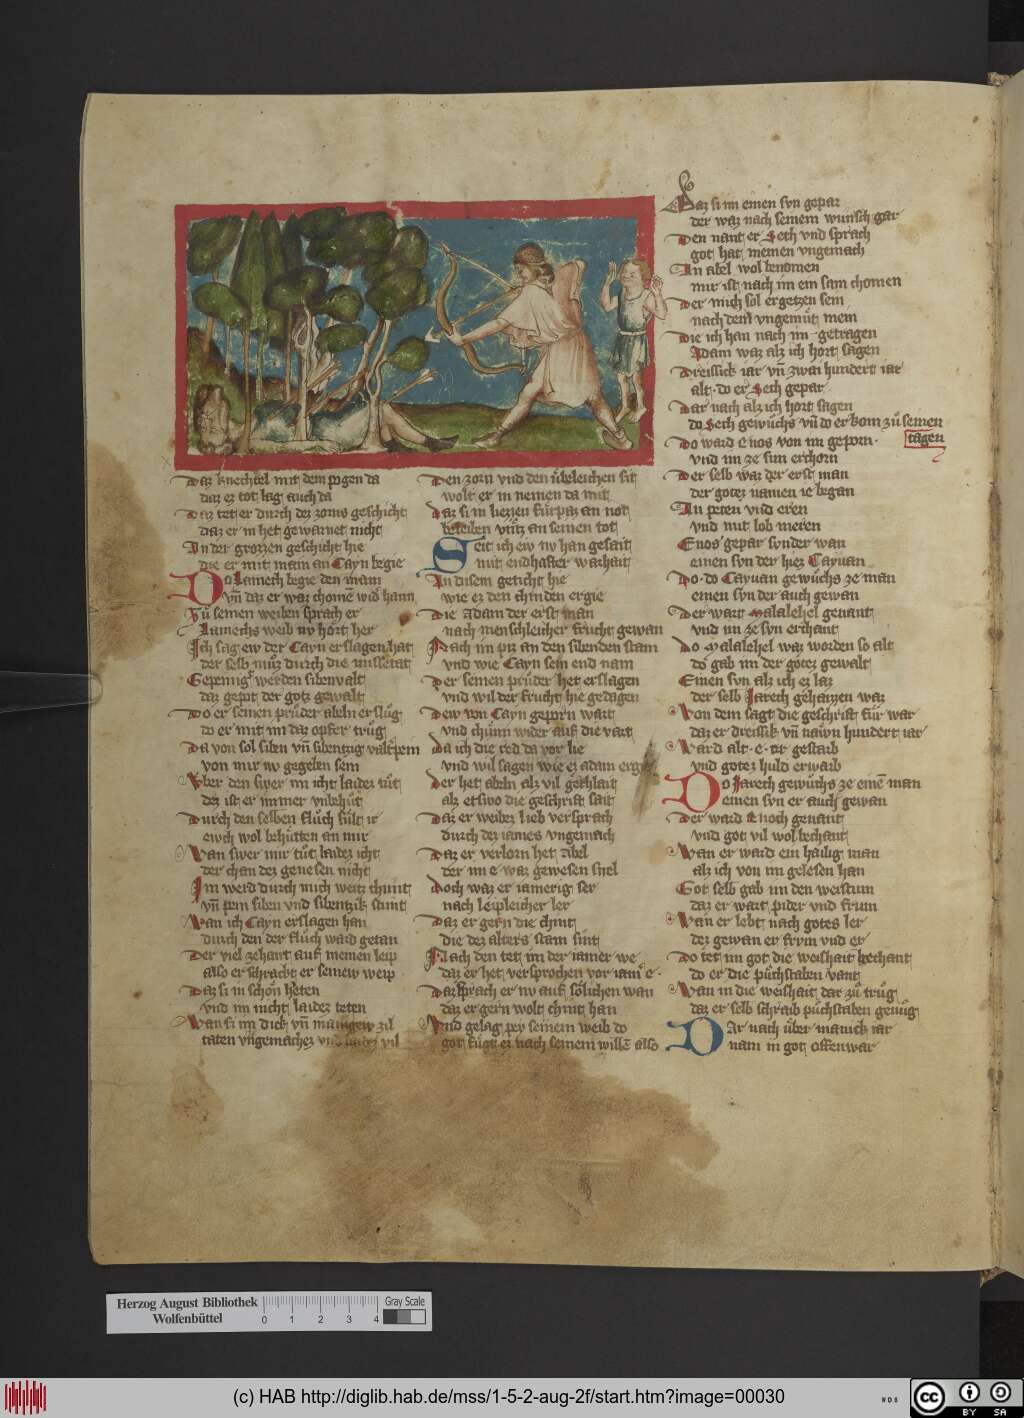 Daz knechtel mit dem pogen da
daz er tot lag auch da
Daz tet er durch dez zorns geschicht
daz er in het gewarnet nicht
In der grozzen geschicht hie
die er mit mam an Cayn begie
Do Lamech begie den main
vn̄ daz er waz chomē wid haim
Zů seinen weiben sprach er
Lamechs weib nv hort her
Ich sag ew der Cayn erslagen hat
der selb můz durch die missetat
Gepeinigt werden sibenvalt
daz gepiut der gotz gewalt
Do er seinen průder abeln erslůg
do er mit im daz opfer trůg
Da von sol siben vn̄ sibentzig valt pein
von mir nv gegeben sein
Vber den swer mir icht laidez tůt
dez ist er immer vnbehůt
Durch den selben flůch sult ir
ewch wol behůtten an mir
Wan swer mir tůt laidez icht
der chan dez genesen nicht
Im werd durch mich weitz chunt
vn̄ pein siben vnd sibentzik stunt
Wan ich Cayn erslagen han
durch den der flůch ward getan
Der viel zehant auf meinen leip
also er schracht er seinew weip
Daz si in schon heten
vnd im nicht laidez teten
Wan si im dick vn̄ manigew zil
taten vngemachez vnd laidez vil
Den zorn vnd den ůbeleichen sit
wolt er in nemen da mit
Daz si in liezzen fůrpaz an not
beleiben vntz an seinen tot
Seit ich ew nv han gesait
mit endhafter warhait
An disem geticht hie
wie ez den chinden ergie
Die Adam der erst man
nach menschleicher frucht gewan
Nach im piz an den sibenden stam
vnd wie Cayn sein end nam
Der seinen průder het erslagen
vnd wil der frucht hie gedagen
Dew von Cayn geporn wart
vnd chum wider auf die vart
Da ich die red da vor lie
vnd wil sagen wie ez adam ergie
Der het abeln alz vil gechlait
alz etswo die geschrift sait
Daz er weibez lieb versprach
durch dez iamers vngemach
Daz er verlorn het Abel
der im e waz gewesen snel
Doch waz er iamerig ser
nach leipleicher ler
Daz er gern die chint
die dez alters stam sint
Nach den tet im der iamer we
daz er het versprochen vor iamer e
Daz sprach er nv auf sölichen wan
daz er gern wolt chint han
Vnd gelag pey seinem weib do
got fůgt ez nach seinem willē also
Daz si im einen svn gepar
der waz nach seinem wunsch gar
Den nant er Seth vnd sprach
got hat meinen vngemach
An abel wol benomen
mir ist nach im ein sam chomen
Der mich sol ergetzen sein
nach dem vngemůt mein
Die ich han nach im getragen
Adam waz alz ich hort sagen
Dreissick iar vn̄ zwai hundert iar
alt do er Seth gepar
Dar nach alz ich hort sagen
do Seth gewůchs vn̄ do er kom zů seinen
tagen
Do ward Enos von im geporn
vnd im ze sun erchorn
Der selb waz der erst man
der gotez namen ie began
An peten vnd eren
vnd mit lob meren
Enos gepar synder wan
einen svn der hiez Cayuan
Do do Cayuan gewůchs ze man
einen svn der auch gewan
Der wart Malalehel genant
vnd im ze svn erchant
Do Malalehel waz worden so alt
do gab im der gotez gewalt
Einen svn alz ich ez laz
der selb Jarech gehaizzen waz
Von dem sagt die geschrift fůr war
daz er dreissik vn̄ nawn hundert iar
Ward alt e er gestarb
vnd gotez huld erwarb
Do Jarech gewůchs ze einē man
einen svn er auch gewan
Der ward Enoch genant
vnd got vil wol bechant
Wan er ward ein hailig man
alz ich von im gelesen han
Got selb gab im den weistum
daz er wart pider vnd frum
Wan er lebt nach gotes ler
dez gewan er frvm vnd er
Do tet im got die weishait bechant
do er die půchstaben vant
Wan in die weishait dar zů trůg
daz er selb schraib půchstaben genůg
Dar nach ůber manick iar
nam in got offenwar
Herzog August Bibliothek
Wolfenbüttel
0 1 2 3 4
Gray Scale
(c) HAB http://diglib.hab.de/mss/1-5-2-aug-2f/start.htm?image=00030
WDB
cc BY SA